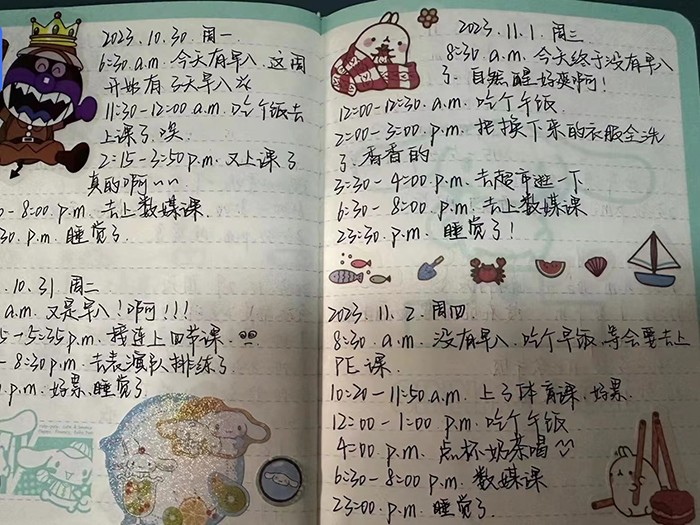 2023.10.30.周一
6:30.a.m.今天有早八.这周
开始有3天早八
11:30-12:00 a.m.吃个饭去
上课了.唉
2:15-3:50p.m.又上课了
真的啊~~
0-8:00 p.m.去上数媒课.
30.p.m.睡觉了.
.10.31.周二
a.m.又是早八!啊!!!
5-5:35p.m.接连上四节课.
-8:30p.m.去表演队排练了
p.m.好累.睡觉了
2023.11.1.周三
8:30.a.m.今天终于没有早八
了.自然醒好爽啊!
12:00-12:30 a.m.吃个午饭
2:00-3:00 p.m.把换下来的衣服全洗
了.香香的
3:30-4:00 p.m.去超市逛一下.
6:30-8:00 p.m.去上数媒课
23:30.p.m.睡觉了!
2023.11.2.周四
8:30.a.m.没有早八.吃个早饭.等会要去上
PE课.
10:20-11:50a.m.上了体育课.好累.
12:00-1:00 p.m.吃个午饭
4:00 p.m.点杯奶茶喝
6:30-8:00 p.m.数媒课
23:00.p.m.睡觉了.